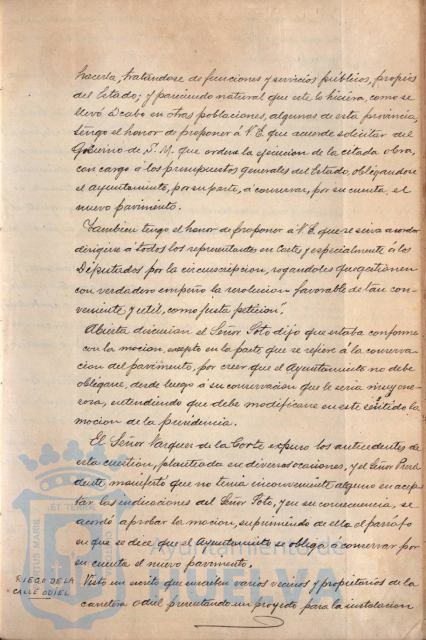 hacerla, tratándose de funciones y servicios públicos, propios
del Estado; y pareciendo natural que este lo hiciera, como se
llevó á cabo en otras poblaciones, algunas de esta provincia,
tengo el honor de proponer á V. E. que acuerde solicitar del
Gobierno de S. M. que ordene la ejecucion de la citada obra,
con cargo á los presupuestos generales del Estado, obligandose
el ayuntamiento, por su parte, á conservar, por su cuenta, el
nuevo pavimento.
Tambien tengo el honor de proponer á V. E. que se sirva acordar
dirigirse á todos los representantes en Cortes y especialmente á los
Diputados por la circunscripcion, rogandoles que gestionen
con verdadero empeño la resolucion favorable de tan con-
veniente y util, como justa peticion".
Abierta discusion el Señor Soto dijo que estaba conforme
con la mocion, excepto en la parte que se refiere á la conserva-
cion del pavimento, por creer que el Ayuntamiento no debe
obligarse, desde luego á su conservacion que le seria muy one-
rosa, entendiendo que debe modificarse en este sentido la
mocion de la presidencia.
El Señor Vazquez de la Corte expuso los antecedentes de
esta cuestion, planteada en diversas ocasiones, y el Señor Presi-
dente manifestó que no tenia inconveniente alguno en acep-
tar las indicaciones del Señor Soto, y en su consecuencia, se
acordó aprobar la mocion, suprimiendo de ella el parrafo
en que se dice que el Ayuntamiento se obliga á conservar por
su cuenta el nuevo pavimento.
RIEGO DE LA
CALLE ODIEL
Visto un escrito que suscriben varios vecinos y propietarios de la
carretera Odiel presentando un proyecto para la instalacion
ET TERRA
Ayuntamiento de
HUELVA